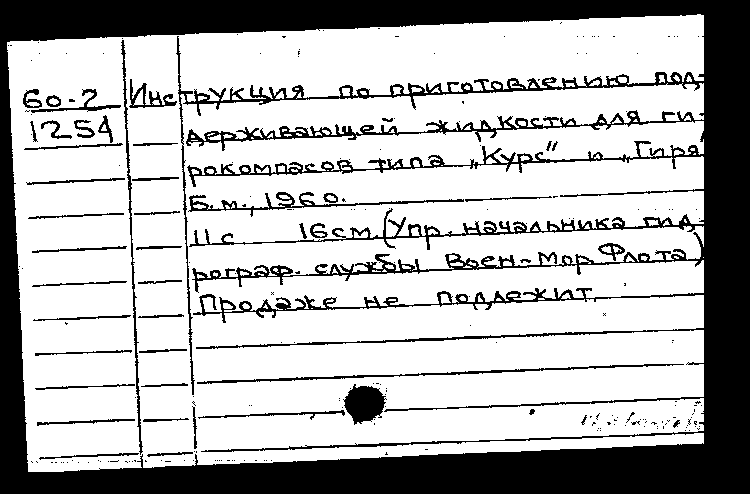 60-2 Инструкция по приготовлению под-
1254 держивающей жидкости для ги-
рокомпасов типа „Курс" и „Гиря"
Б.м., 1960.
11 с 16 см. (Упр. начальника гид-
рограф. службы Воен-Мор. Флота)
Продаже не подлежит.